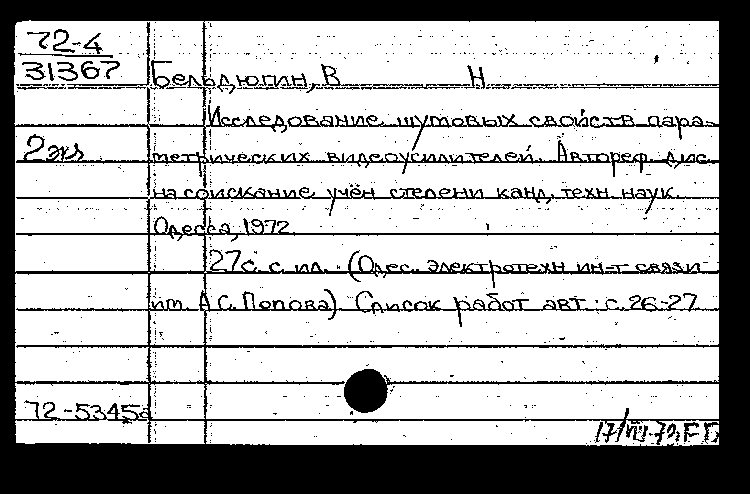 72-4
31367
Бельдюгин, В Н
Исследование шумовых свойств пара-
2 экз
метрических видеоусилителей. Автореф. дис.
на соискание учён степени канд. техн. наук.
Одесса, 1972.
27 с. с ил. (Одес. электротехн ин-т связи
им А С. Попова). Список работ авт.: с. 26-27
72-5345а
17/VIII-72